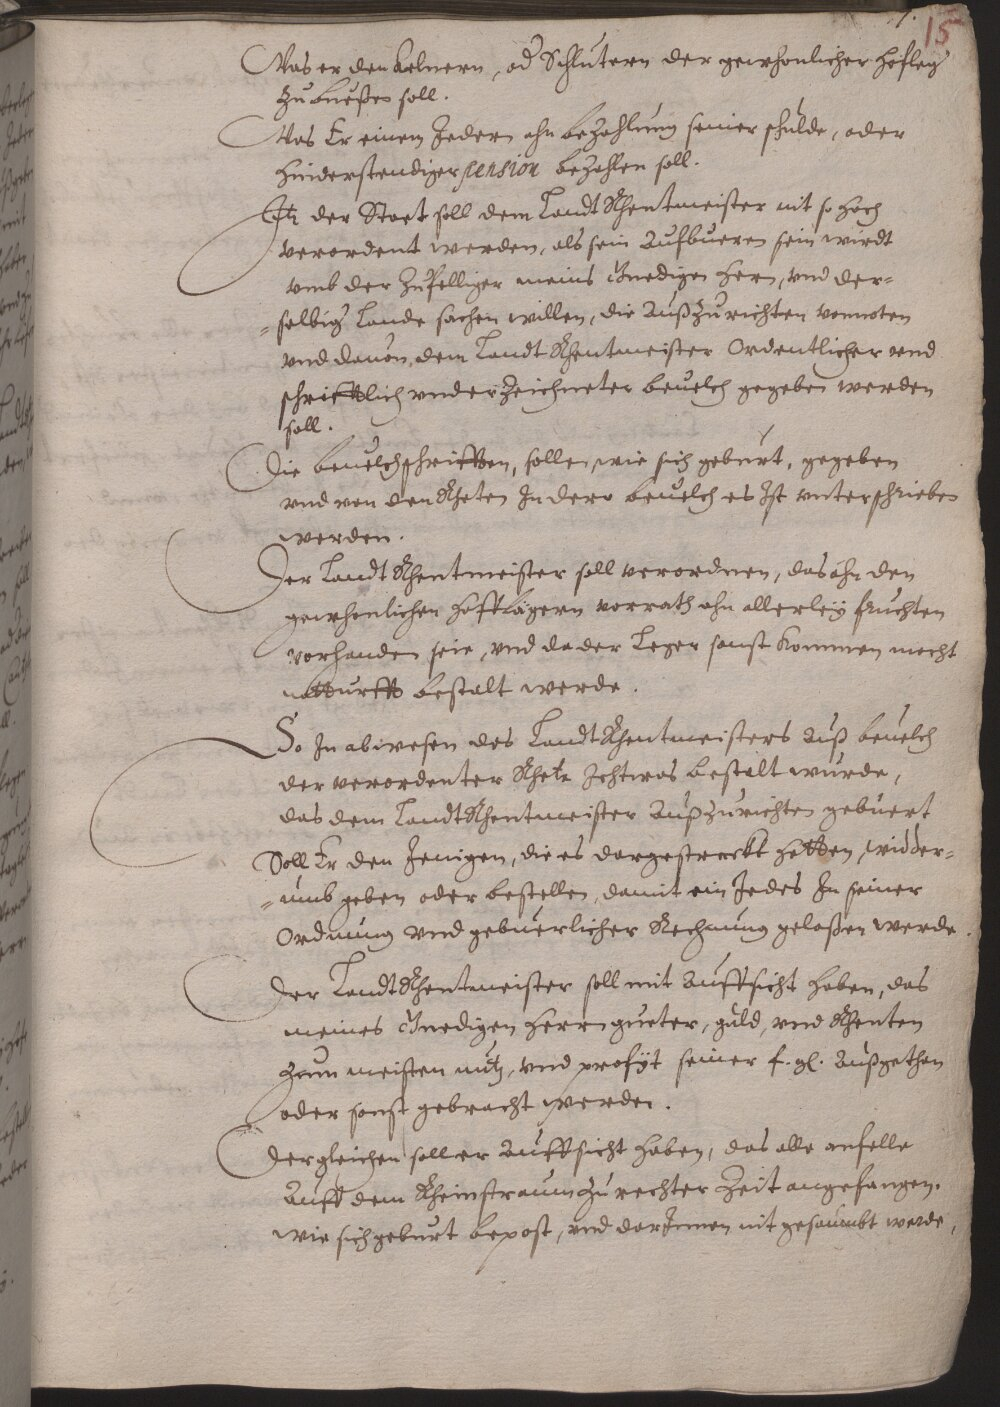 15
Was er den Kelnern, od Schlutern der gewhonlicher Hofleg
zubueßen soll.
Was Er einem Jedern ahn bezahlung seiner schulde, oder
hinderstendiger pension bezahlen soll.
Itz der Staet soll dem Landt Rhentmeister nit so hoch
verordent werden, als sein Aufbueren sein wirdt
umb der Zufelliger meins Gnedigen Hern, vnd der-
-selbig Lande sachen willen, die Außzurichten vonnoten
vnd dauon, dem Landt Rhentmeister Ordentlicher vnd
schrifftlich vnderzeichneter beuelch gegeben werden
soll.
Die beuelchschrifften, sollen wie sich geburt, gegeben
vnd von den Rheten In dero beuelch es Ist vnterschrieben
werden.
Der Landt Rhentmeister soll verordnen, das ahn den
gewhonlichen Hofflägern vorrath ahn allerleÿ fruchten
vorhanden seie, vnd da der Leger sonst kommen mocht
notturfft bestalt werde.
So In abwesen des Landt Rhentmeisters Auß beuelch
der verordenter Rhete Ichtwas bestalt wurde,
das dem Landt Rhentmeister Außzurichten gebuert
Soll Er den Jenigen, die es dargestreckt hetten, widder-
-umb geben oder bestellen, damit ein Jedes In seiner
Ordnung vnd gebuerlicher Rechnung gelaßen werde.
Der Landt Rhentmeister soll mit Auffsicht haben, das
meines Gnedigen Herrn gueter, guld, vnd Rhenten
zum meisten nutz, vnd profijt seiner f. gl. Außgethan
oder sonst gebracht werden.
Dergleichen soll er Auffsicht haben, das alle anfelle
Auff dem Rheinstraum zu rechter Zeit angefangen.
wie sich geburt bepost, vnd darInnen nit gesaumbt werde,